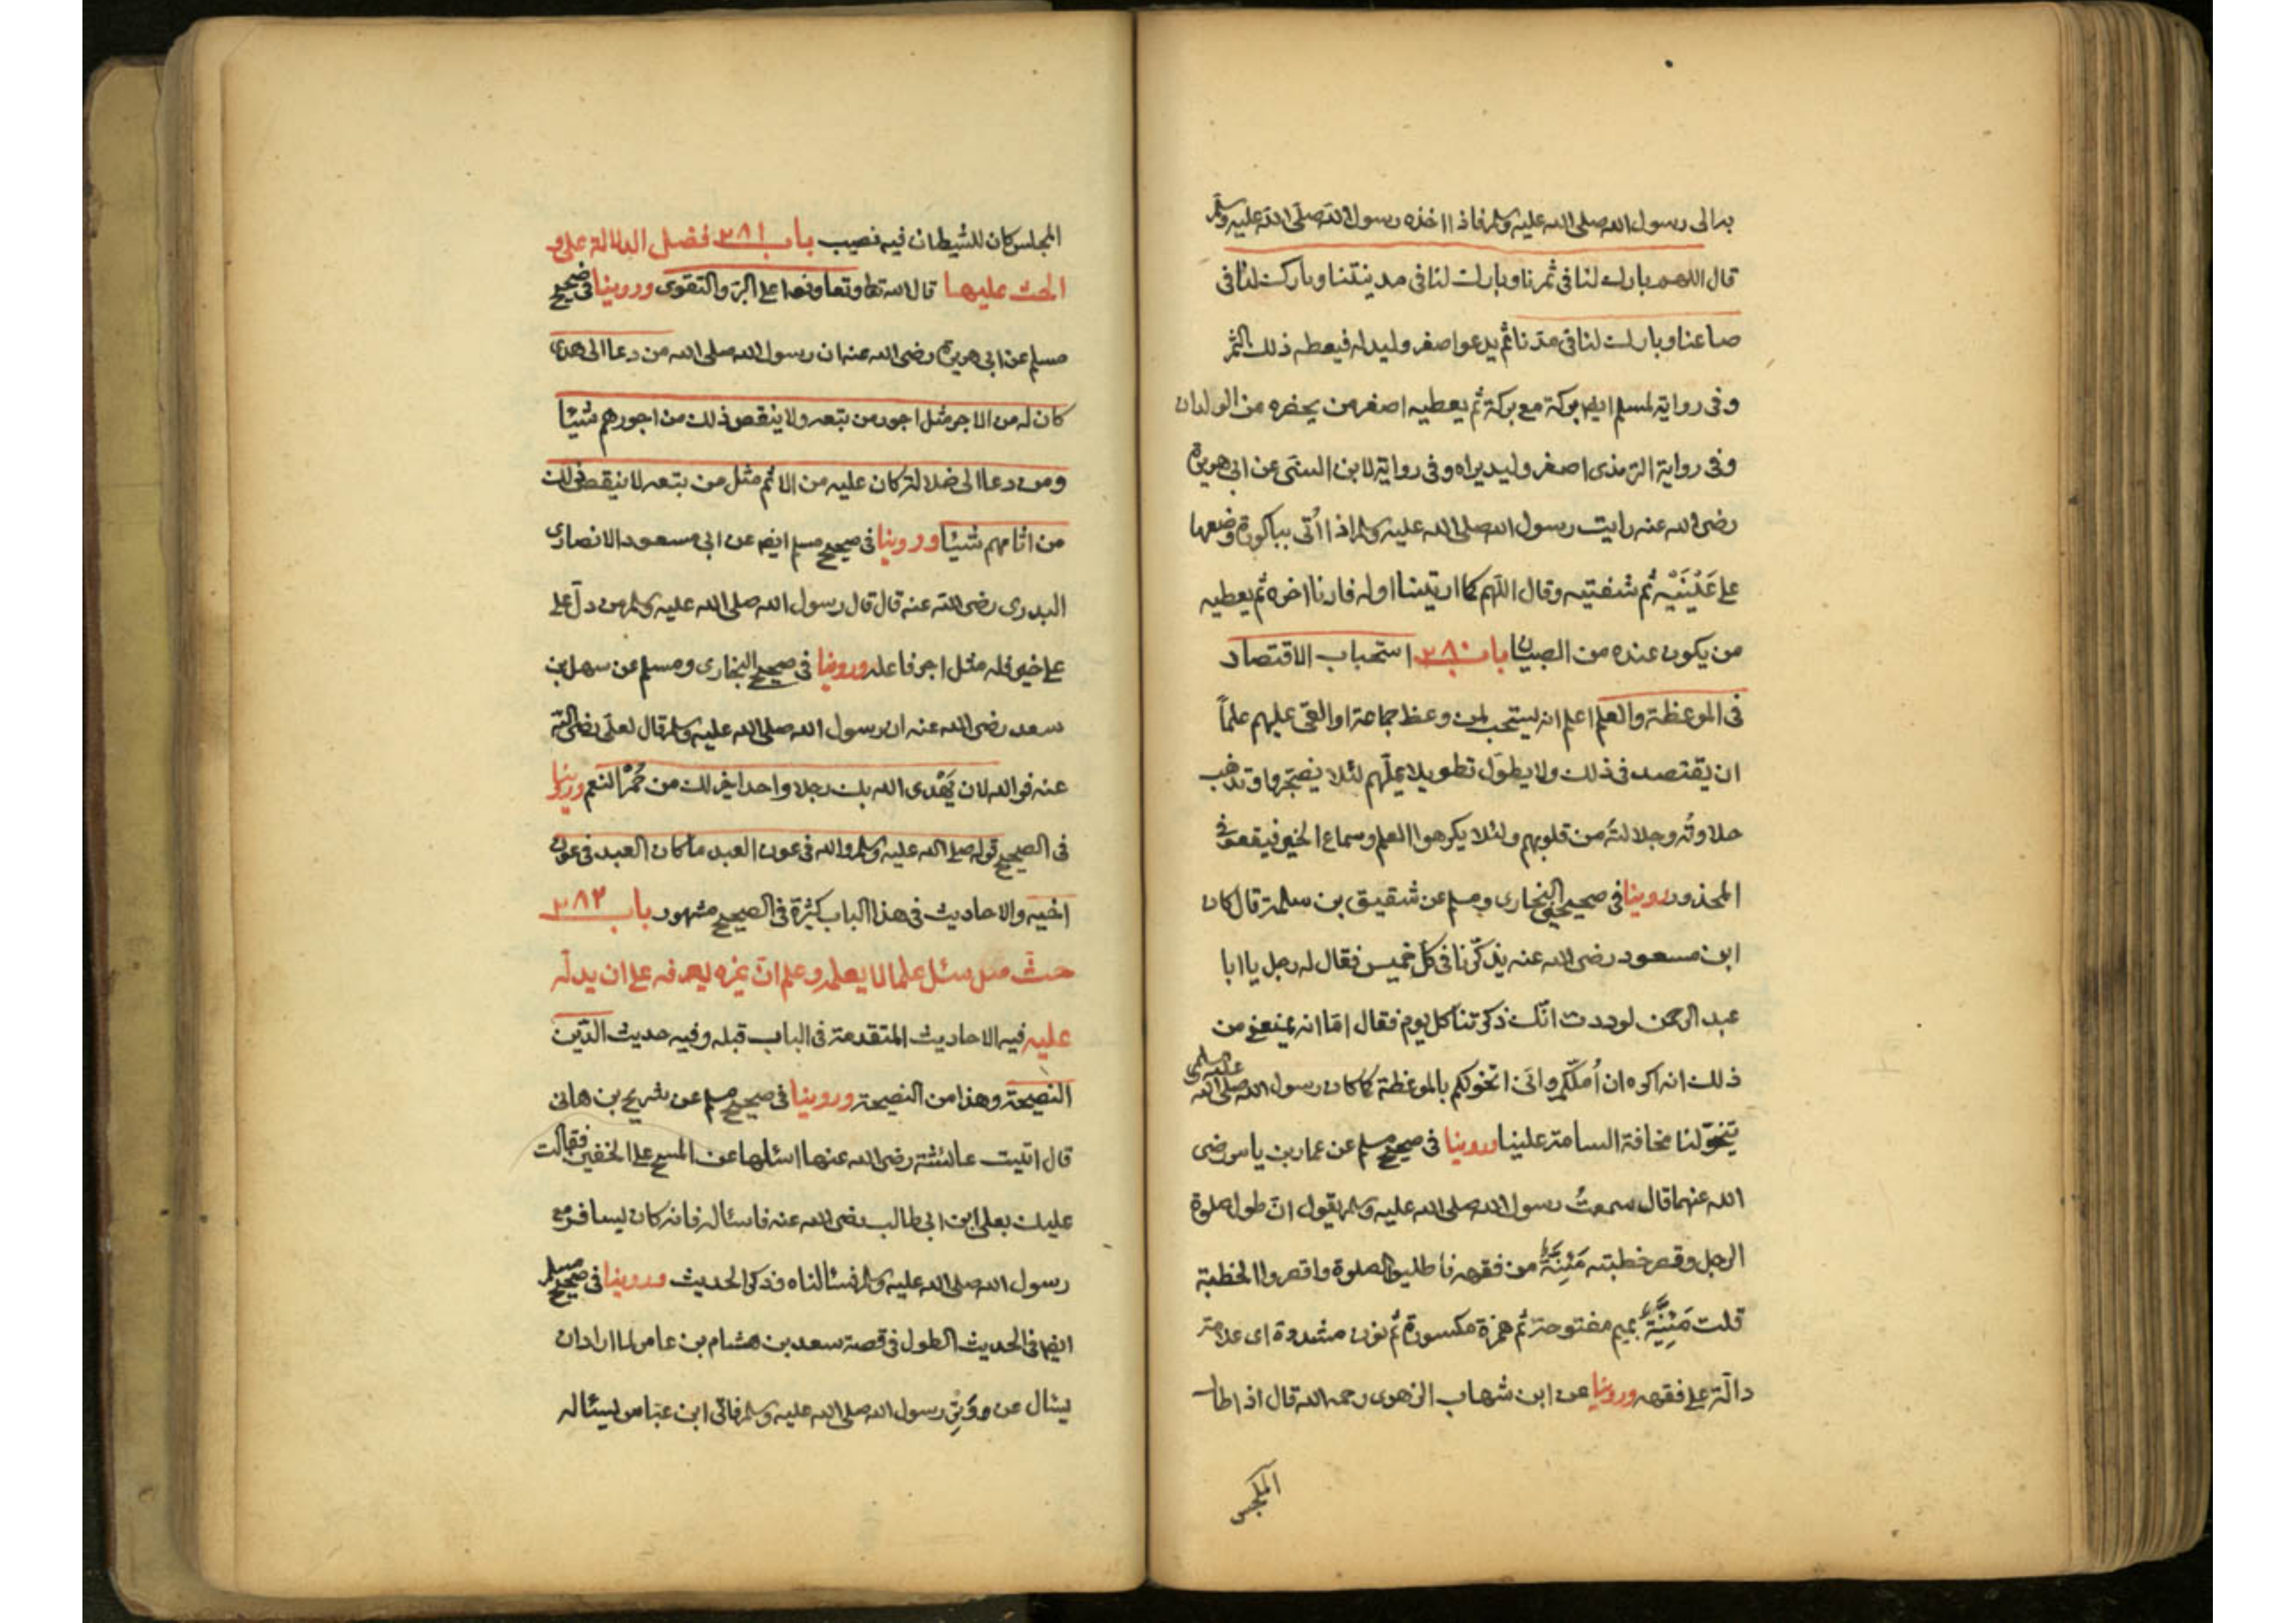 به الى رسول الله صلى الله عليه وسلم فاذا اخذه رسول الله صلى الله عليه وسلم
قال اللهم بارك لنا فى ثمرنا وبارك لنا فى مدينتنا وبارك لنا فى
صاعنا وبارك لنا فى مدنا ثم يدعو اصغر وليد له فيعطه ذلك الثمر
وفى رواية لمسلم ايض بركة مع بركة ثم يعطيه اصغر من يحضره من الولدان
وفى رواية الترمذى اصغر وليد يراه وفى رواية لابن السنى عن ابى هريرة
رضى الله عنه رايت رسول الله صلى الله عليه وسلم اذا اُتى بباكورة وضعها
على عَيْنَيْهِ ثم شفتيه وقال اللّهم كما اريتنا اوله فارنا اخره ثم يعطيه
من يكون عنده من الصبيان باب ٢٨٠ استحباب الاقتصاد
فى الموعظة والعلم اعلم انه يستحب لمن وعظ جماعة او القى عليهم علماً
ان يقتصد فى ذلك ولا يطوّل تطويلا يملّهم لئلا يضجروا وتذهب
حلاوتُه وجلالتُه من قلوبهم ولئلا يكرهوا العلم وسماع الخير فيقعوا فى
المحذور روينا فى صحيحى البخارى ومسلم عن شقيق بن سلمة قال كان
ابن مسعود رضى الله عنه يذكّرنا فى كل خميس فقال له رجل يا ابا
عبد الرحمن لوددت انّك ذكرتنا كل يوم فقال امّا انه يمنعنى من
ذلك انه اكره ان اُملّكم وانّى اتخولكم بالموعظة كما كان رسول الله صلى الله عليه وسلم
يتخوّلنا مخافة السامة علينا وروينا فى صحيح مسلم عن عمار بن ياسر رضى
الله عنهما قال سمعتُ رسول الله صلى الله عليه وسلم يقول انّ طول صلوة
الرجل وقصر خطبته مَئِنَّةٌ من فقهه فاطليوا الصلوة واقصروا الخطبة
قلت مَئِنَّةٌ بميم مفتوحة ثم همزة مكسورة ثم نون مشددة اى علامة
دالّة على فقهه وروينا عن ابن شهاب الزهرى رحمه الله قال اذا طال
المجلس
المجلس كان للشيطان فيه نصيب باب ٢٨١ فضل الدلالة على و
الحث عليها قال الله تعا وتعاونوا على البر والتقوى وروينا فى صحيح
مسلم عن ابى هريرة رضى الله عنه ان رسول الله صلى الله من دعا الى هدى
كان له من الاجر مثل اجور من تبعه ولا ينقص ذلك من اجورهم شيئا
ومن دعا الى ضلالة كان عليه من الاثم مثل من تبعه لا ينقص ذلك
من اثامهم شيئا وروينا فى صحيح مسلم ايض عن ابى مسعود الانصارى
البدرى رضى الله عنه قال قال رسول الله صلى الله عليه وسلم من دلّ على
على خير فله مثل اجر فاعله وروينا فى صحيح البخارى ومسلم عن سهل بن
سعد رضى الله عنه ان رسول الله صلى الله عليه وسلم قال لعلى رضى الله
عنه فوالله لان يَهْدى الله بك رجلا واحدا خير لك من حُمْر النعم وروينا
فى الصحيح قوله صلى الله عليه وسلم والله فى عون العبد ما كان العبد فى عون
اخيه والاحاديث فى هذا الباب كثرة فى الصحيح مشهور باب ٢٨٢
حثّ من سئل علما لا يعلمه وعلم انّ غيره يعرفه على ان يدلّه
عليه فيه الاحاديث المتقدمة فى الباب قبله وفيه حديث الدّين
النصيحة وهذا من النصيحة وروينا فى صحيح مسلم عن شريح بن هانى
قال اتيت عائشة رضى الله عنها اسئلها عن المسح على الخفين فقالت
عليك بعلى ابن ابى طالب رضى الله عنه فاسئاله فانه كان يسافر مع
رسول الله صلى الله عليه وسلم فسئالناه فذكر الحديث وروينا فى صحيح مسلم
ايض فى الحديث الطول فى قصة سعد بن هشام بن عامر لما اراد ان
يسئال عن وترِ رسول الله صلى الله عليه وسلم فاتى ابن عباس يسئاله